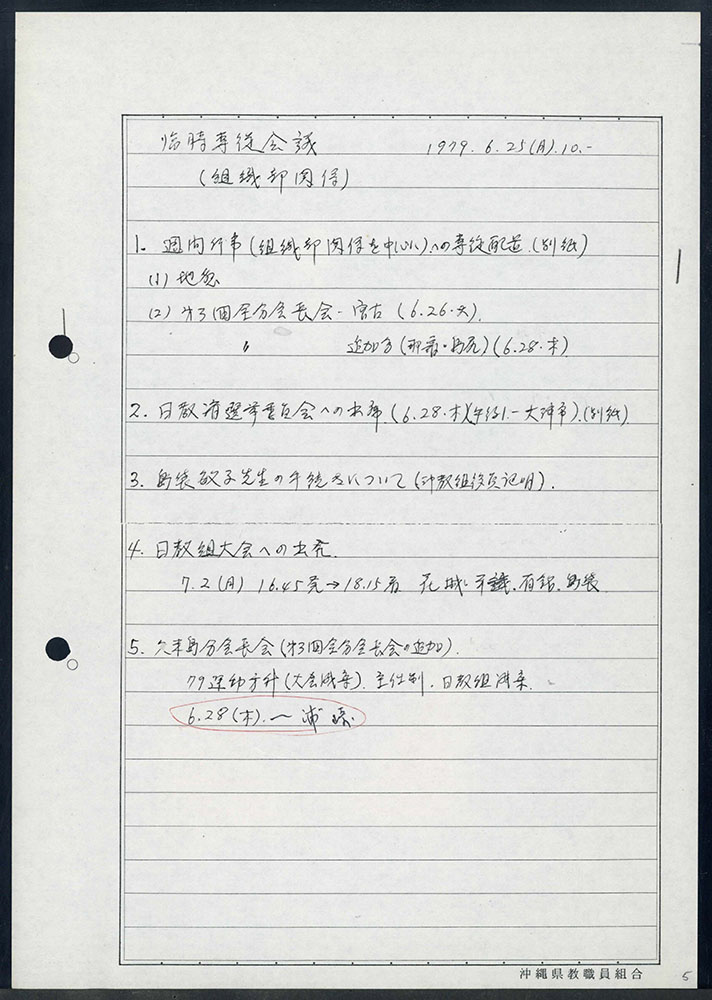 臨時専従会議 1979.6.25(月).10.-
(組織部関係)
1. 週間行事(組織部関係を中心に)への専従配置.(別紙)
(1) 地区
(2) 第3回全分会長会-宮古(6.26.火).
〃 追加分(那覇・島尻)(6.28.木)
2. 日教済選挙委員会への出席.(6.28.木)(午後1.-大洋市).(別紙)
3. 島袋敏子先生の手続きについて(沖教組役員証明).
4. 日教組大会への出発.
7.2(月) 16.45発→18.15着 花城、平識、有銘、島袋
5. 久米島分会長会(第3回全分会長会の追加).
79運動方針(大会成案). 主任制. 日教組清案.
6.28(木).〜浦添.
沖縄県教職員組合
5